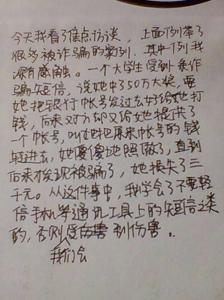 今天我看了焦点访谈，上面列举了
很多被诈骗的案例，其中一例我
深有感触。一个大学生受到来作
骗短信，说她中了50万大奖，需
她把银行帐号发过去好给她打
钱，后来对方却又给她提供了
一个帐号，叫她把原来帐号的钱
转进去，她傻傻地照做了，直到
后来才发现被骗了，她损失了三
千元。从这件事中，我学会了不要轻
信手机等通讯工具上的短信之类
的，否则会伤害受到伤害。
我们会